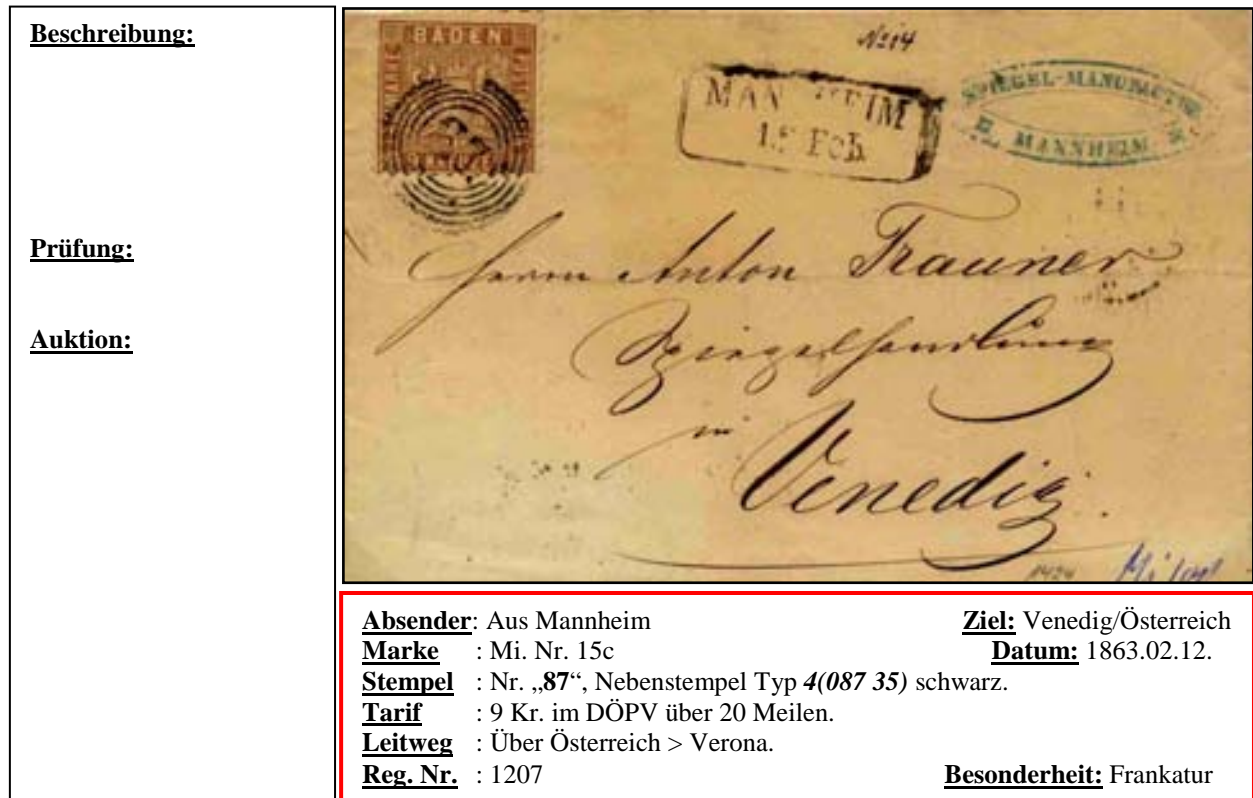 Beschreibung:
Prüfung:
Auktion:
BADEN
№ 14
MANNHEIM
Feb.
SPIEGEL-MANUFACTUR
MANNHEIM
Herrn Anton Trauner
Spiegelhandlung
in
Venedig.
1424
Absender: Aus Mannheim Ziel: Venedig/Österreich
Marke : Mi. Nr. 15c Datum: 1863.02.12.
Stempel : Nr. „87“, Nebenstempel Typ 4(087 35) schwarz.
Tarif : 9 Kr. im DÖPV über 20 Meilen.
Leitweg : Über Österreich > Verona.
Reg. Nr. : 1207 Besonderheit: Frankatur